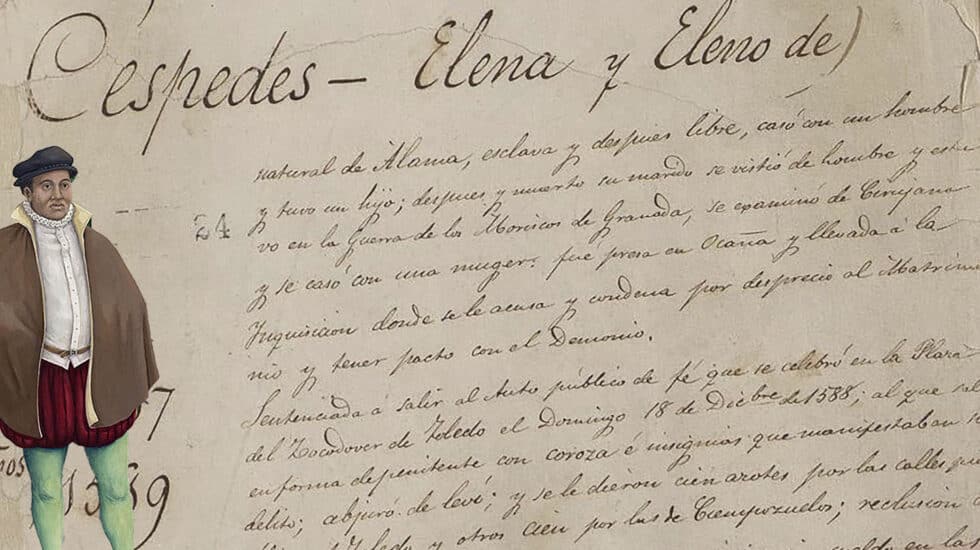 Céspedes — Elena y Eleno de)
natural de Álama, esclava y despues libre, casó con un hombre
y tuvo un hijo; despues y muerto su marido se vistió de hombre y estu
24
vo en la Guerra de los Moriscos de Granada, se examinó de Cirujana
y se casó con una muger: fue presa en Ocaña y llevada á la
Inquisicion donde se le acusa y condena por desprecio al Matrimo
nio y tener pacto con el Demonio.
Sentenciada á salir al Auto público de fé que se celebró en la Plaza
del Zocodover de Toledo el Domingo 18 de Dicbre de 1588; al que sal
en forma de penitente con coroza é insignias que manifestaban
delito; abjuró de leví; y se le dieron cien azotes por las calles
Toledo y otros cien por las de Ciempozuelos; reclusion
en la
7
1589